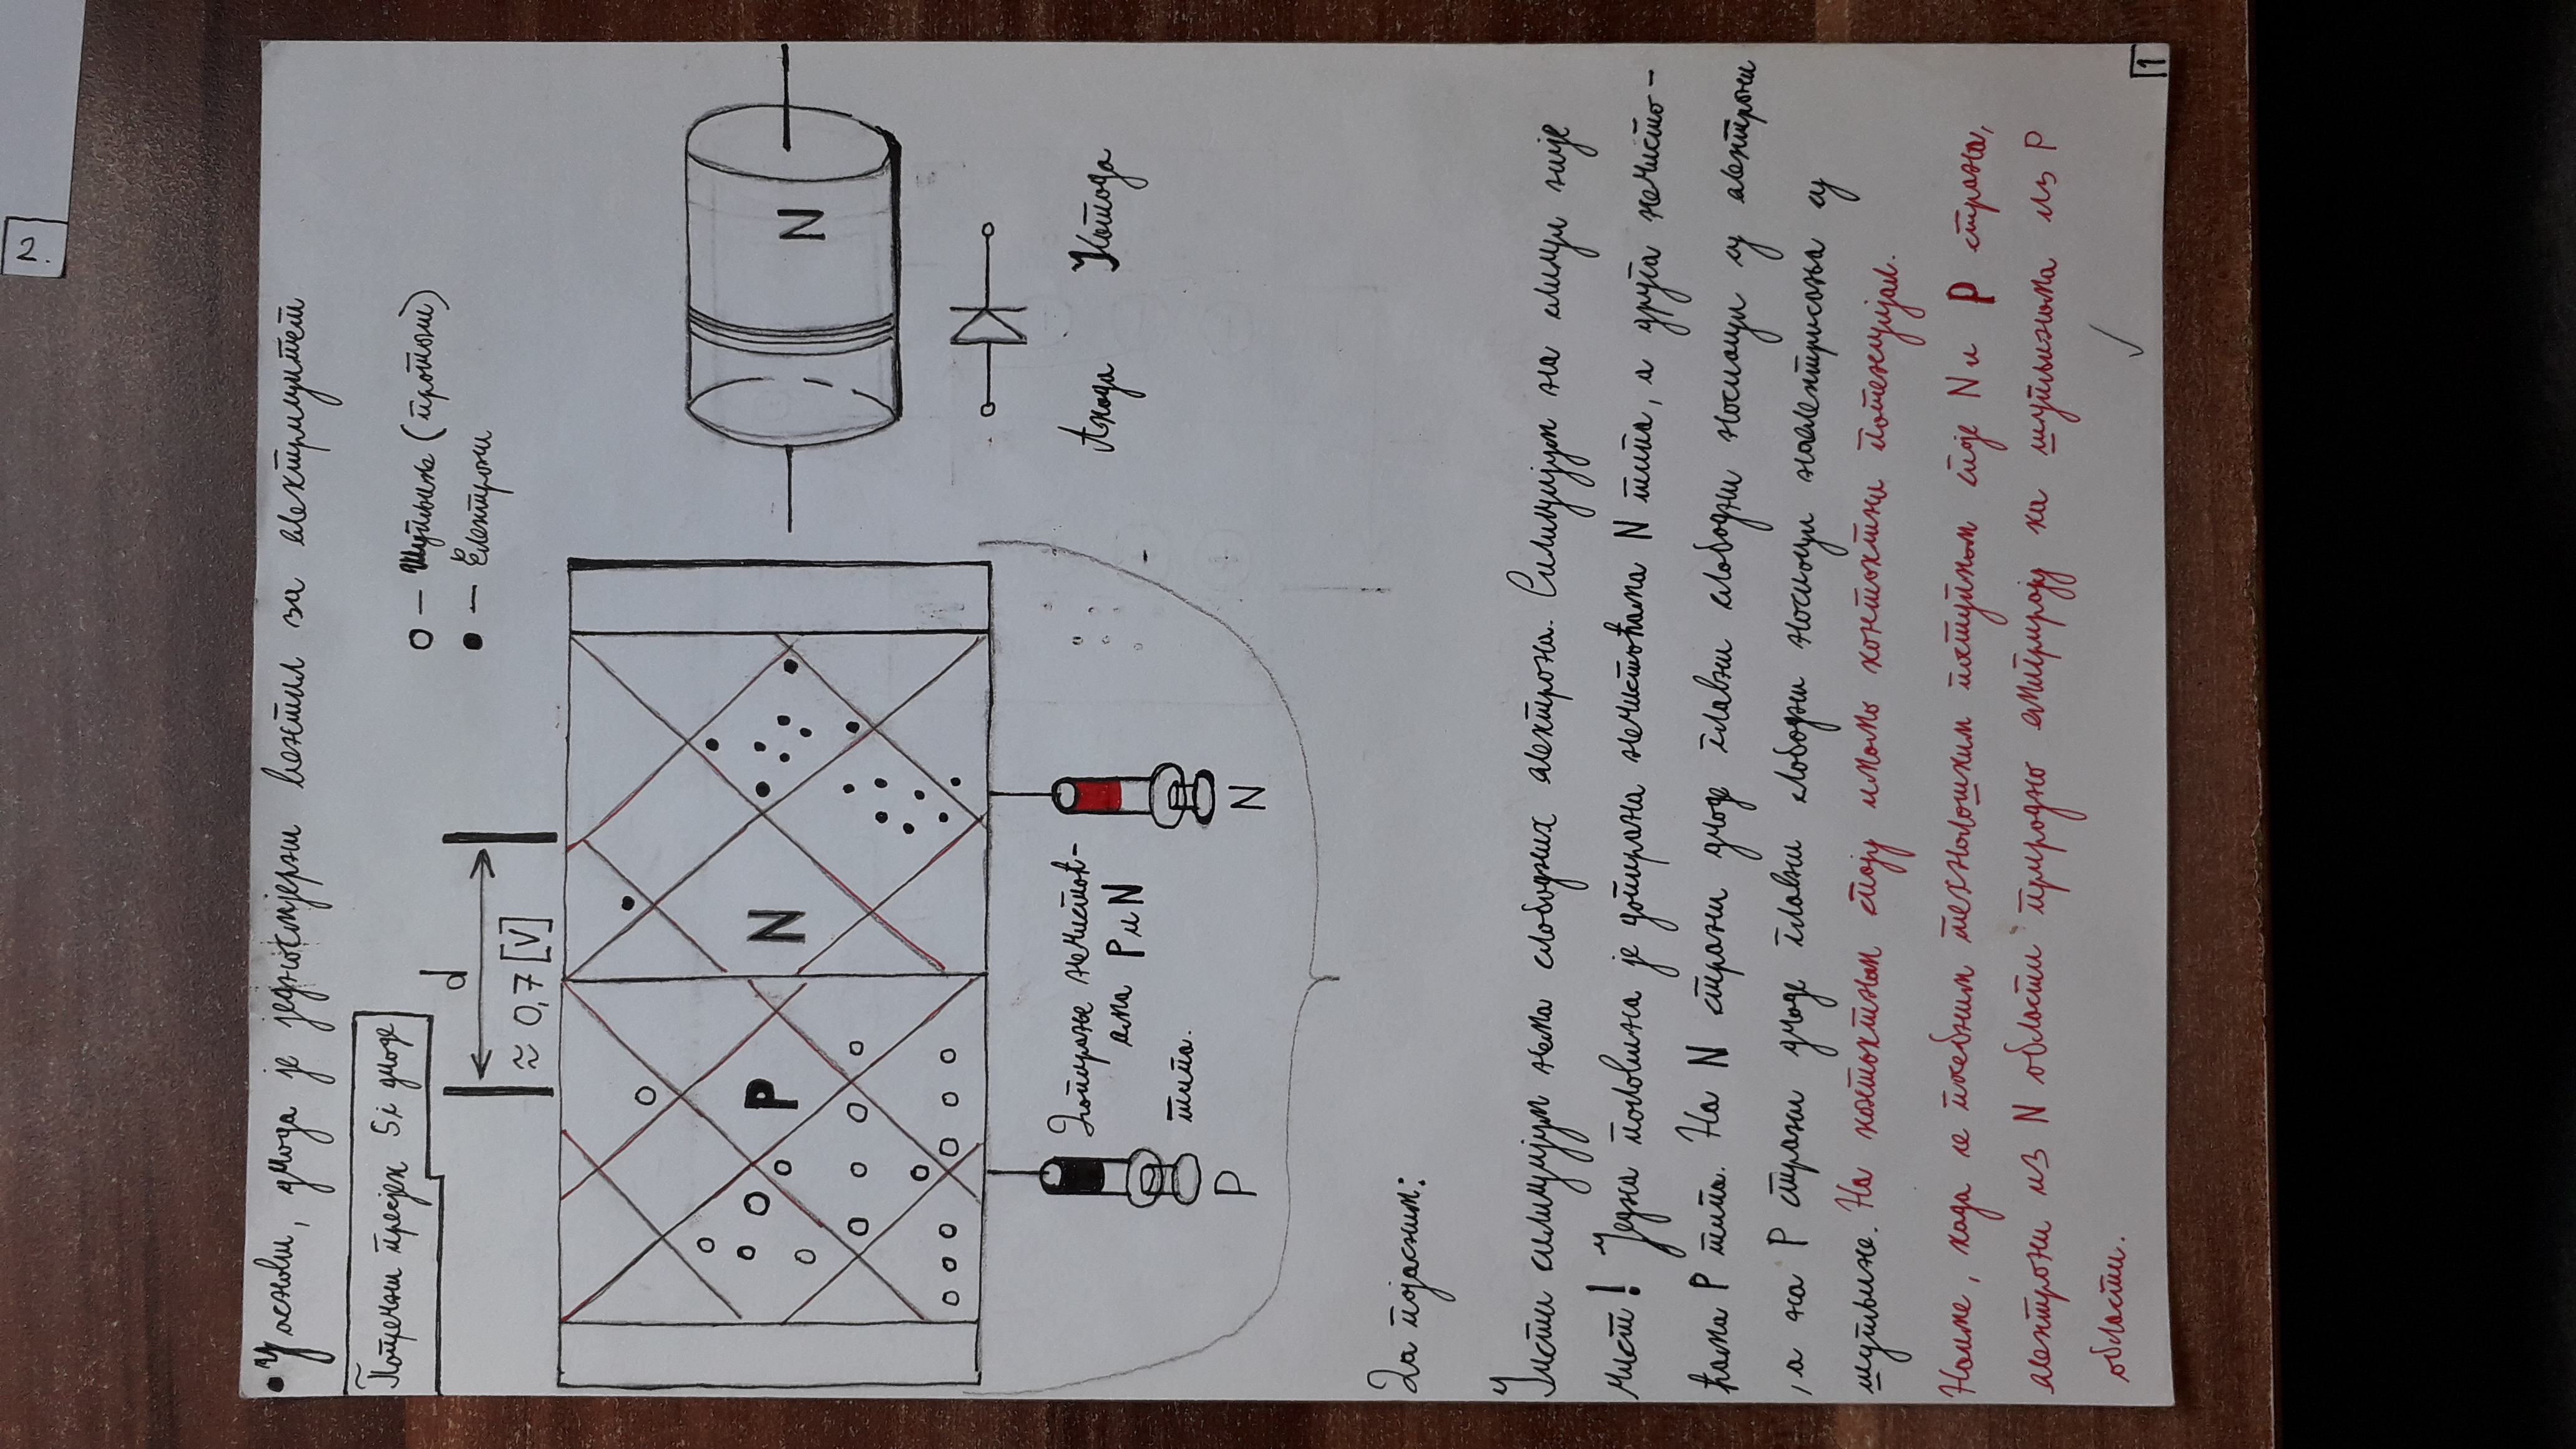 2.
• У основи, диода је једносмјерни вентил за електрицитет
Попречни пресјек Si диоде
d
≈ 0,7 [V]
○ — Шупљине (протони)
● — Електрони
P
N
N
Допирање нечистоћ-
ама P и N
типа.
P
N
Анода Катода
Да појасним:
Чисти силицијум нема слободних електрона. Силицијум на слици није
чист! Једна половина је допирана нечистоћама N типа, а друга нечисто-
ћама P типа. На N страни диоде главни слободни носиоци су електрони
, а на P страни диоде главни слободни носиоци наелектрисања су
шупљине. На контактном споју имамо контактни потенцијал.
Наиме, када се посебним технолошким поступком споје N и P страна,
електрони из N области природно емигрирају ка шупљинама из P
области.
1